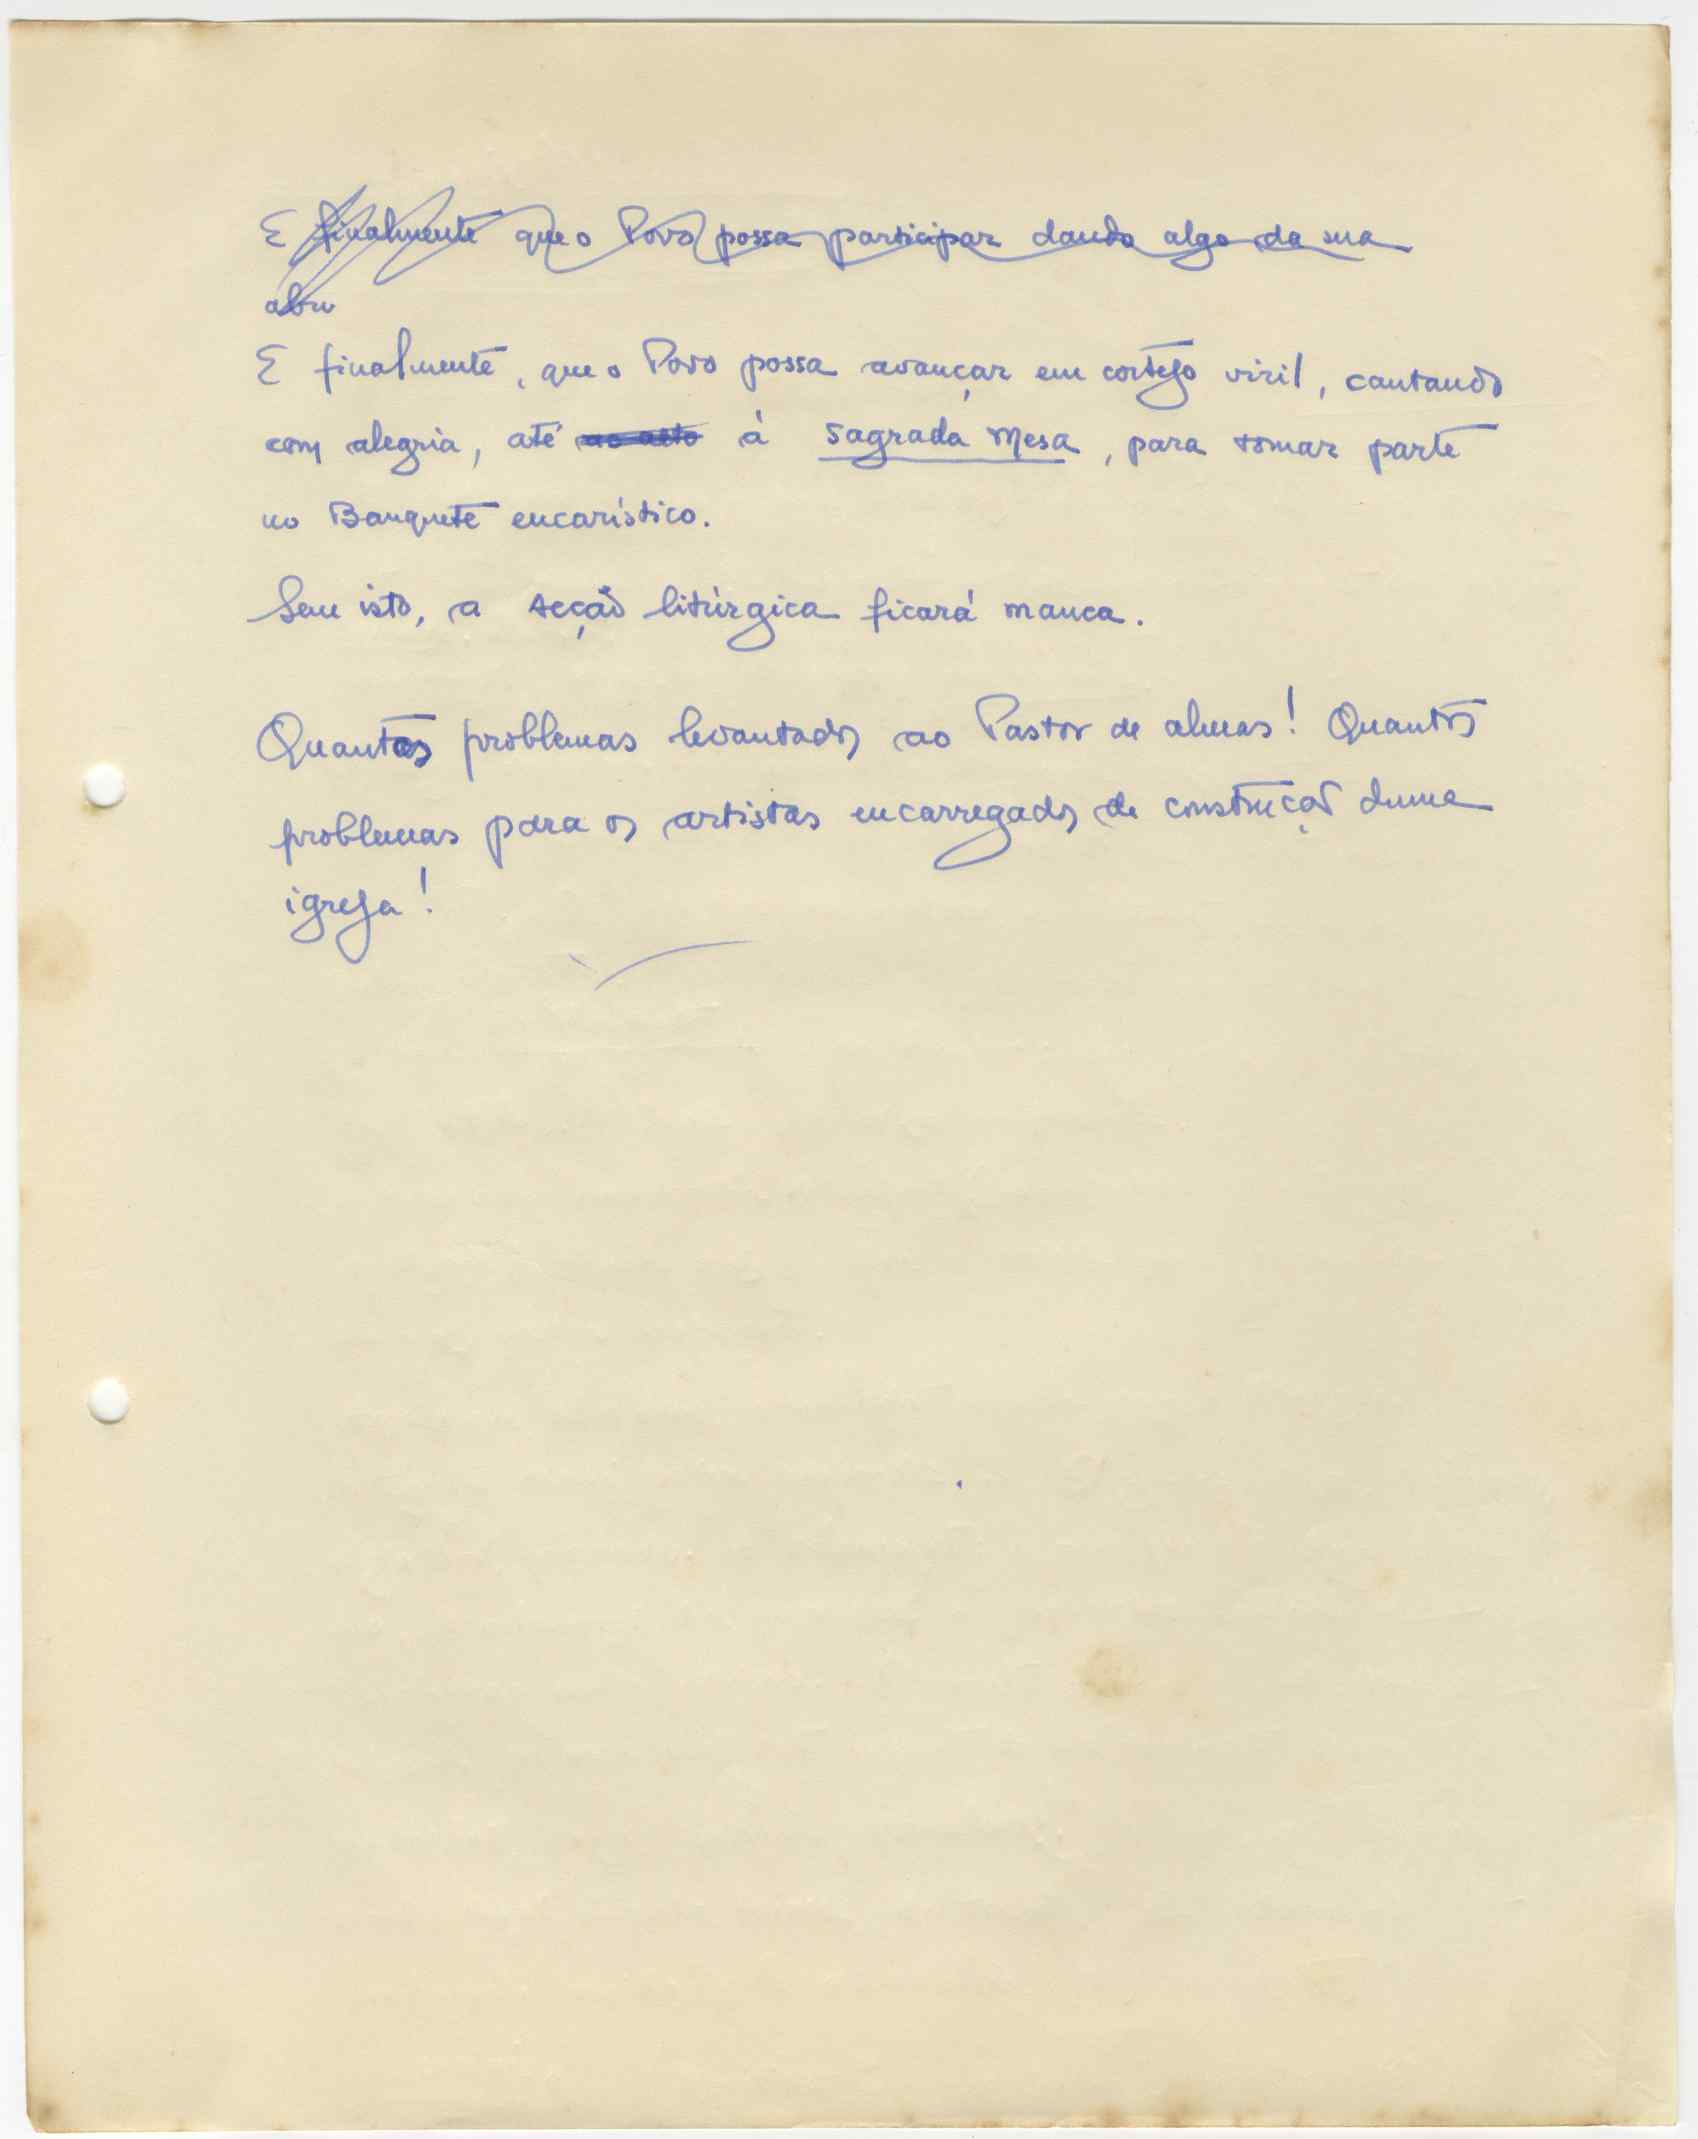 E finalmente que o Povo possa participar dando algo da sua
abu
E finalmente, que o Povo possa avançar em cortejo viril, cantando
com alegria, até ao acto à Sagrada Mesa, para tomar parte
no Banquete eucarístico.
Sem isto, a Acção litúrgica ficará manca.
Quantos problemas levantados ao Pastor de almas! Quantos
problemas para os artistas encarregados de construção duma
igreja!